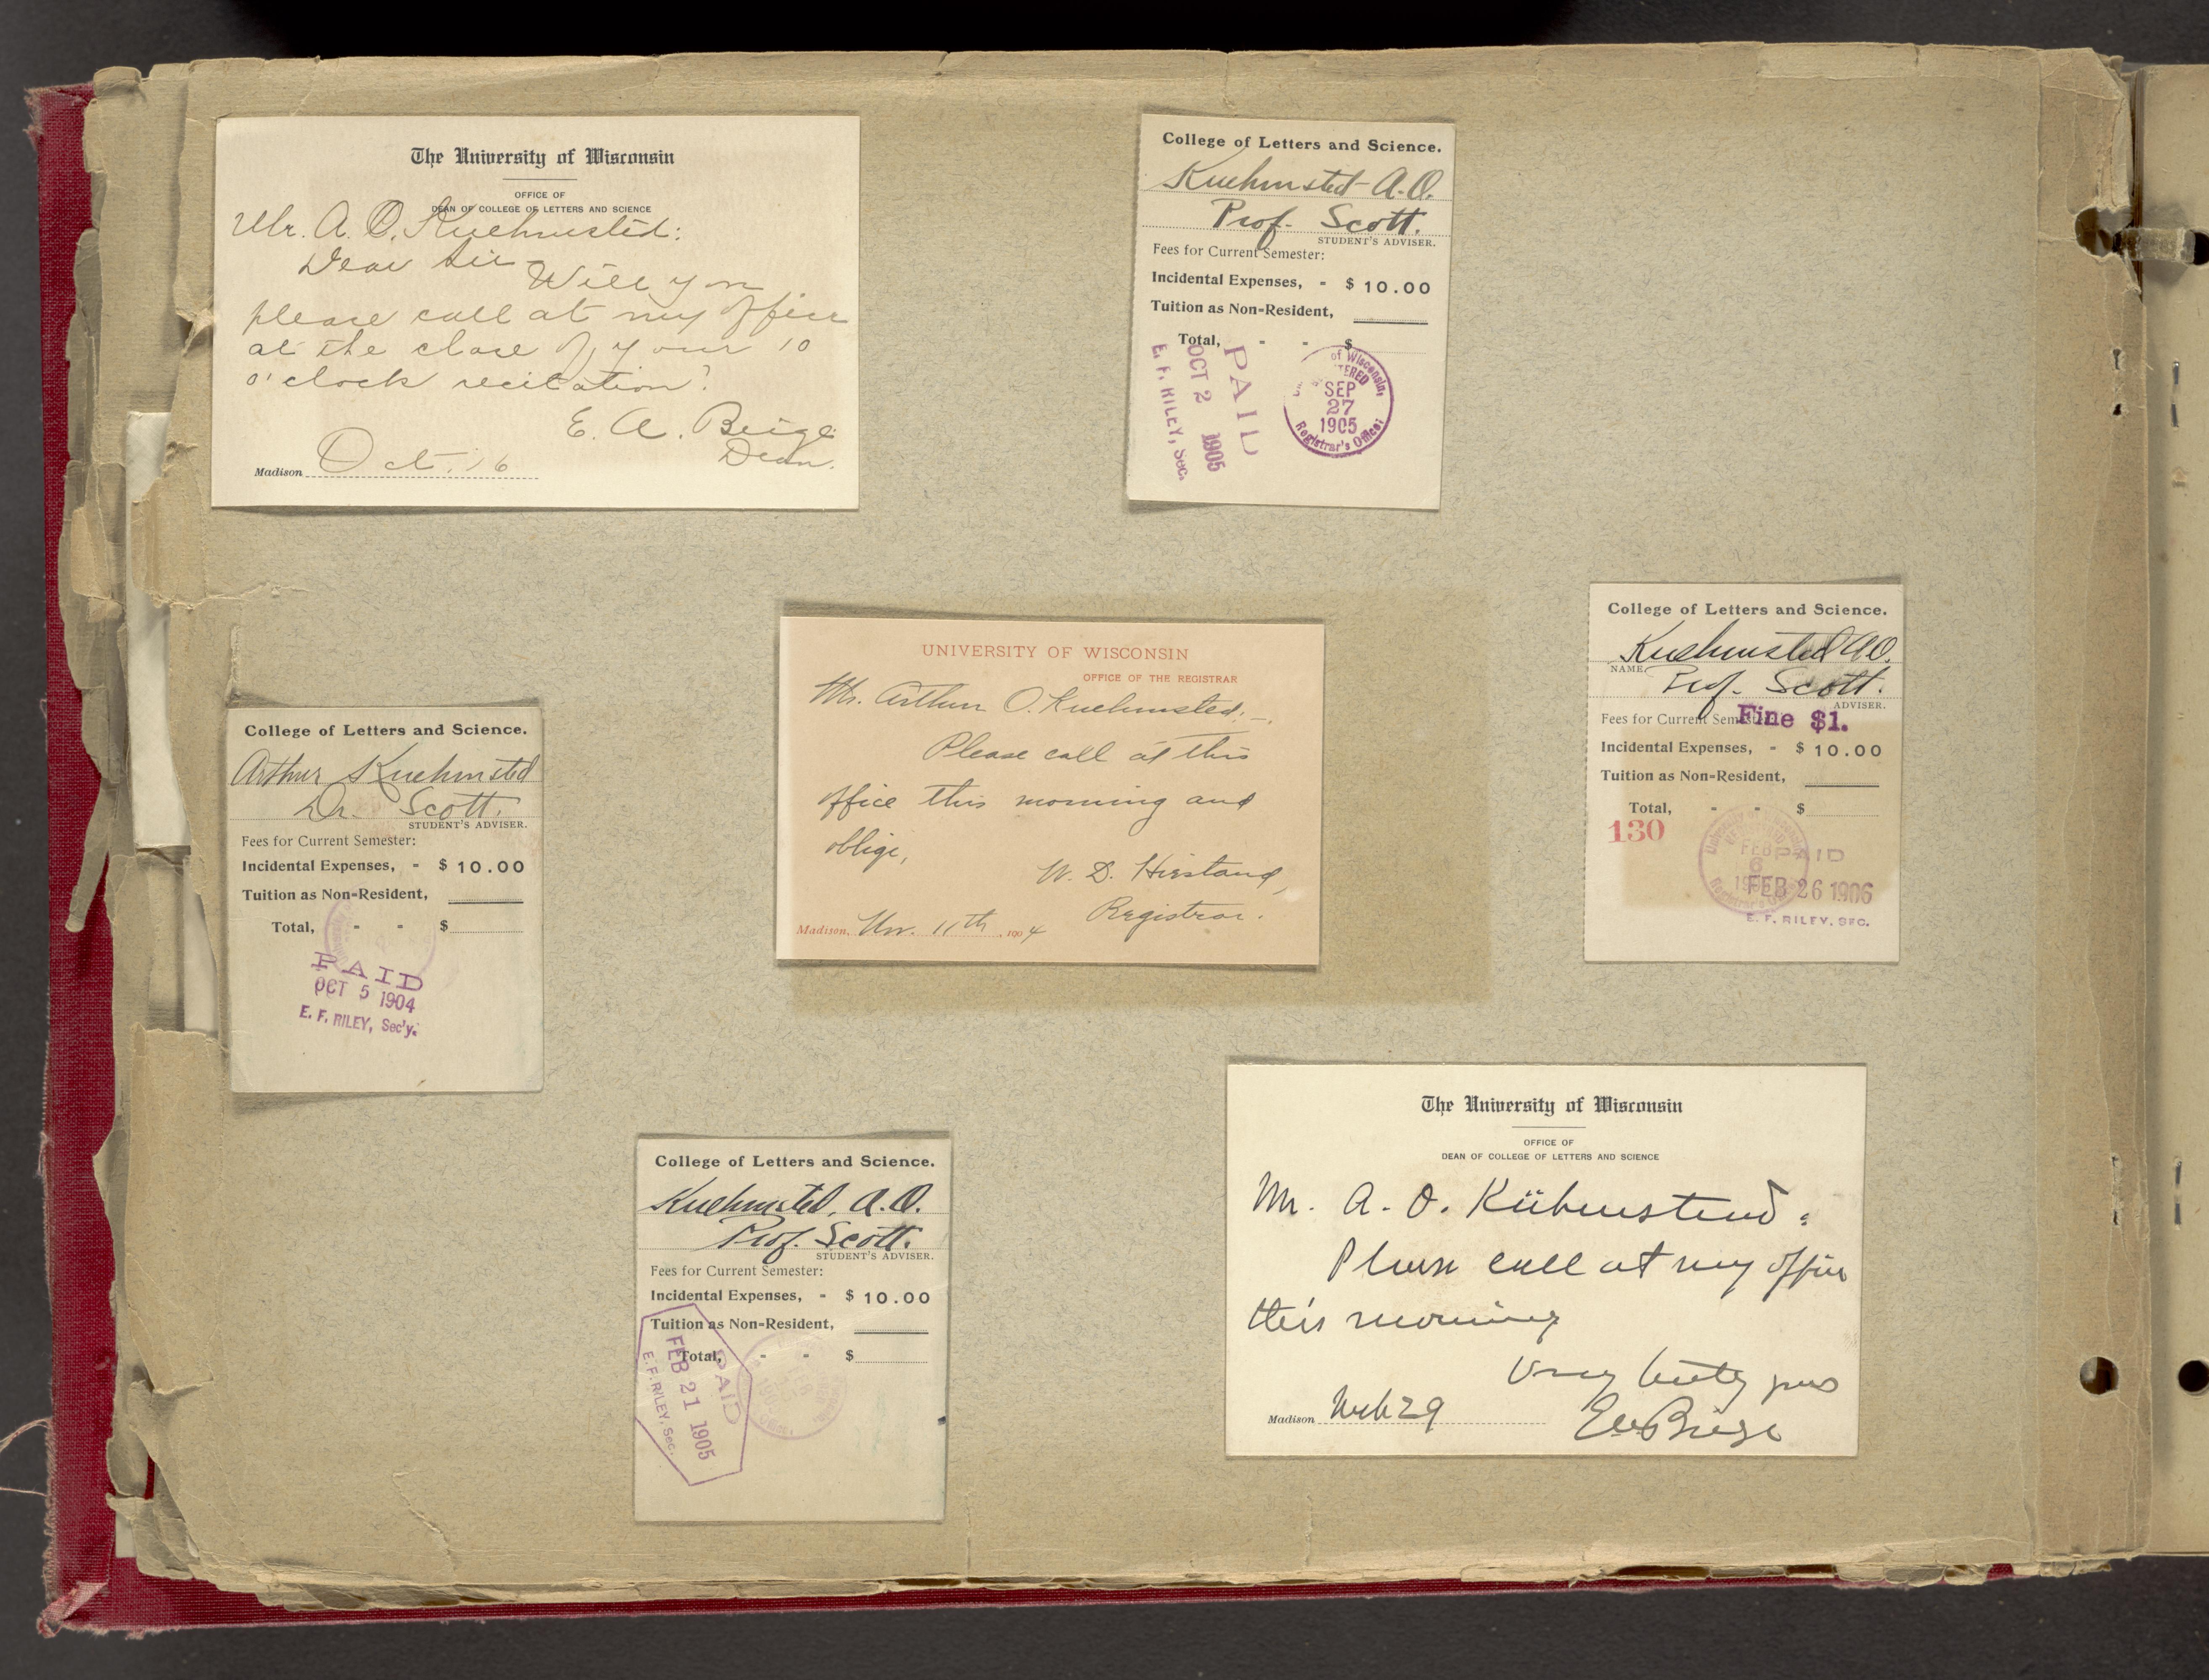 The University of Wisconsin
OFFICE OF
DEAN OF COLLEGE OF LETTERS AND SCIENCE
Mr. A. O. Kuehmsted:
Dear Sir-
Will you
please call at my office
at the close of your 10
o'clock recitation?
E. A. Beige
Dean.
Madison Oct. 16
College of Letters and Science.
Kuehmsted A.O.
Prof. Scott.
STUDENT'S ADVISER.
Fees for Current Semester:
Incidental Expenses, - $ 10.00
Tuition as Non-Resident,
Total, - - $
PAID
OCT 2 1905
E. F. RILEY, Sec.
of Wisconsin
SEP
27
1905
Registrar's Office
College of Letters and Science.
Arthur Kuehmsted
Dr. Scott.
STUDENT'S ADVISER.
Fees for Current Semester:
Incidental Expenses, - $ 10.00
Tuition as Non-Resident,
Total, - - $
PAID
OCT 5 1904
E. F. RILEY, Sec'y.
UNIVERSITY OF WISCONSIN
OFFICE OF THE REGISTRAR
Mr. Arthur O. Kuehmsted:-
Please call at this
office this morning and
oblige,
W. D. Hiestand,
Registrar.
Madison, Nov. 11th, 1904
College of Letters and Science.
Kuehmsted A O.
NAME.
Prof. Scott.
ADVISER.
Fees for Current
Fine $1.
Incidental Expenses, - $ 10.00
Tuition as Non-Resident,
Total, - - $
130
FEB
6
PAID
FEB 26 1906
E. F. RILEY, SEC.
College of Letters and Science.
Kuehmsted, A.O.
Prof. Scott.
STUDENT'S ADVISER.
Fees for Current Semester:
Incidental Expenses, - $ 10.00
Tuition as Non-Resident,
Total, - - $
PAID
FEB 21 1905
E. F. RILEY, Sec.
The University of Wisconsin
OFFICE OF
DEAN OF COLLEGE OF LETTERS AND SCIENCE
Mr. A. O. Kühmstend:
Please call at my office
this morning
Very truly yours
EABirge
Madison 29